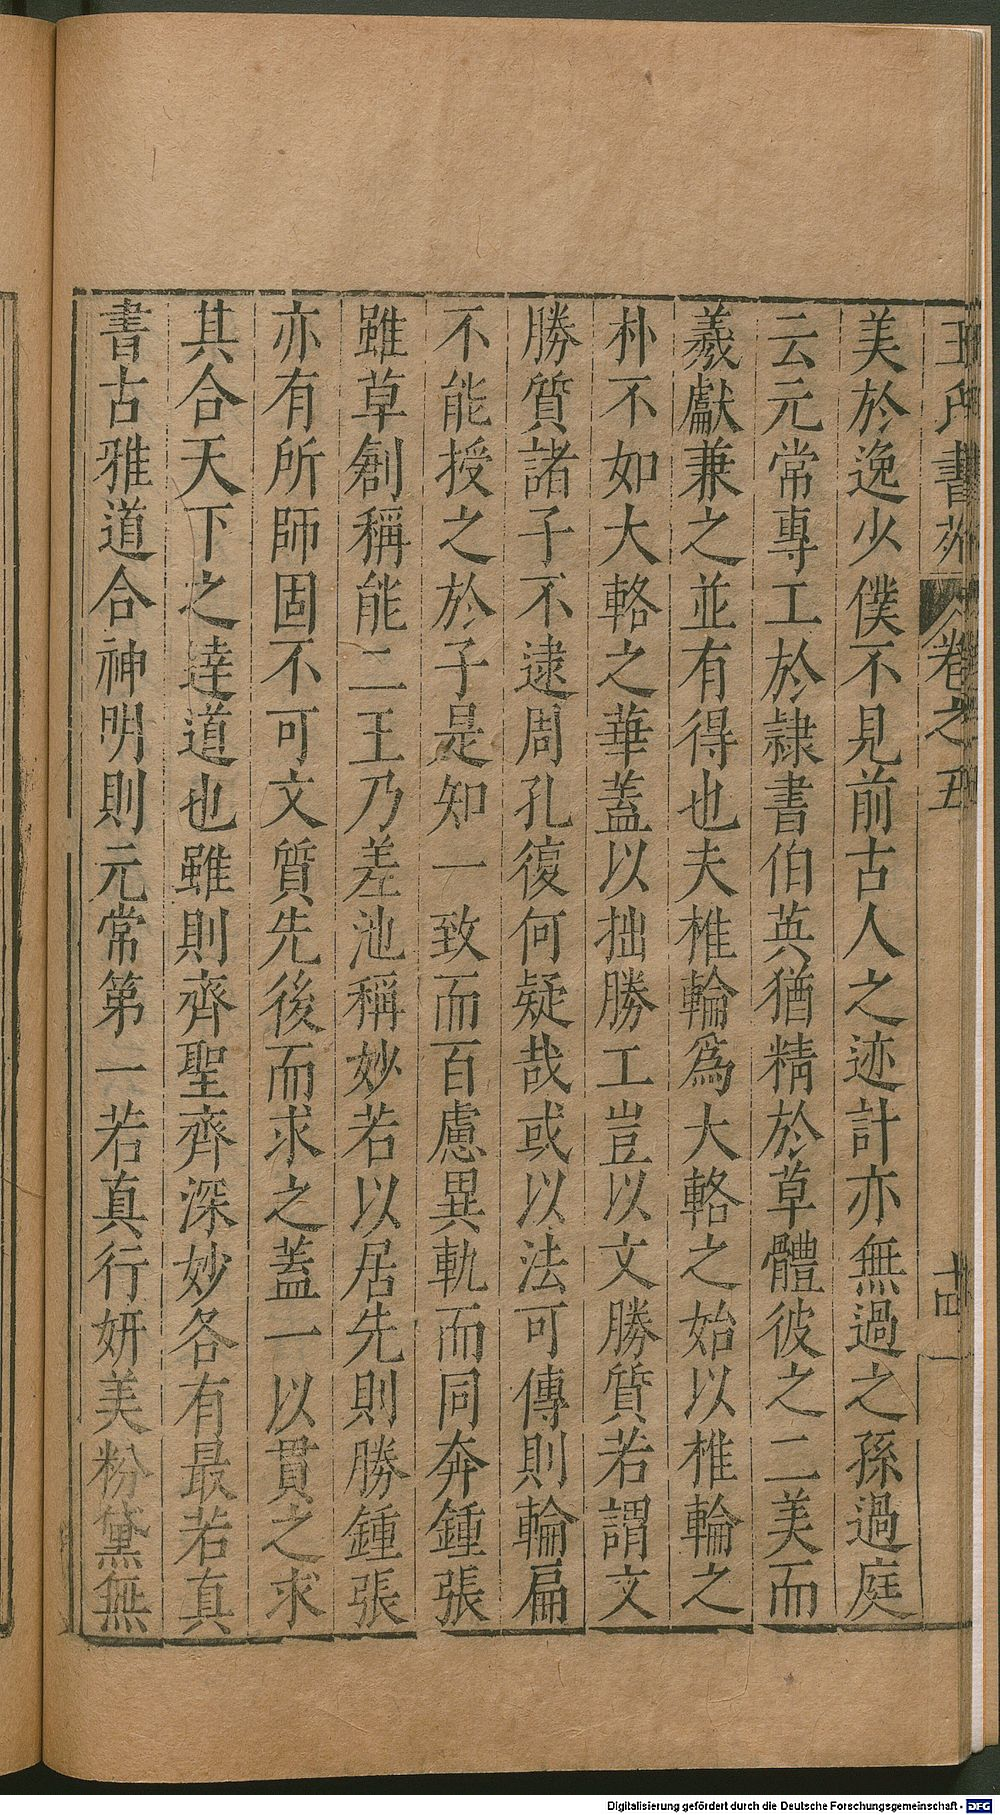 王氏書苑 卷之五 十四
美於逸少僕不見前古人之迹計亦無過之孫過庭
云元常專工於隷書伯英猶精於草體彼之二美而
羲獻兼之並有得也夫椎輪爲大輅之始以椎輪之
朴不如大輅之華蓋以拙勝工豈以文勝質若謂文
勝質諸子不逮周孔復何疑哉或以法可傳則輪扁
不能授之於子是知一致而百慮異軌而同奔鍾張
雖草創稱能二王乃差池稱妙若以居先則勝鍾張
亦有所師固不可文質先後而求之蓋一以貫之求
其合天下之達道也雖則齊聖齊深妙各有最若真
書古雅道合神明則元常第一若真行妍美粉黛無
Digitalisierung gefördert durch die Deutsche Forschungsgemeinschaft - DFG